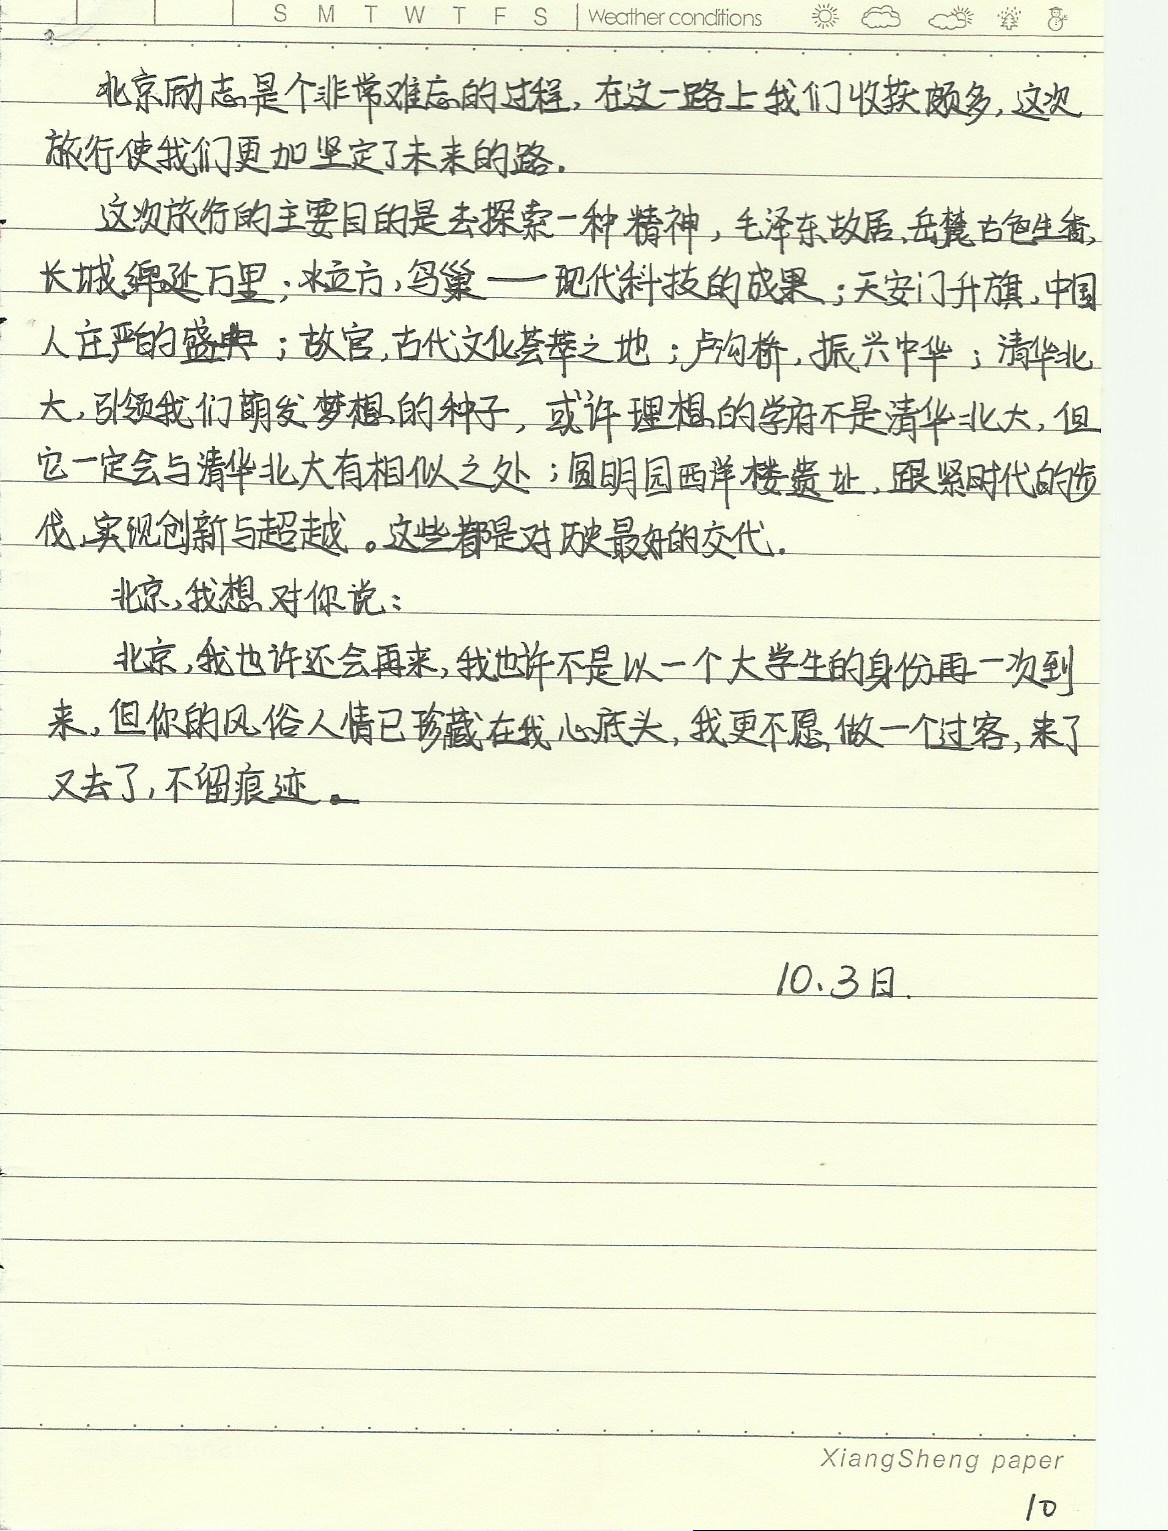 S M T W T F S Weather conditions
北京励志是个非常难忘的过程，在这一路上我们收获颇多，这次
旅行使我们更加坚定了未来的路.
这次旅行的主要目的是去探索一种精神，毛泽东故居、岳麓古色生香，
长城，绵延万里；水立方，鸟巢——现代科技的成果；天安门升旗，中国
人庄严的盛典；故宫，古代文化荟萃之地；卢沟桥，振兴中华；清华北
大，引领我们萌发梦想的种子，或许理想的学府不是清华北大，但
它一定会与清华北大有相似之处；圆明园西洋楼遗址，跟紧时代的步
伐，实现创新与超越。这些都是对历史最好的交代.
北京，我想对你说：
北京，我也许还会再来，我也许不是以一个大学生的身份再一次到
来，但你的风俗人情已珍藏在我心底头，我更不愿做一个过客，来了
又去了，不留痕迹。
10.3日.
XiangSheng paper
10